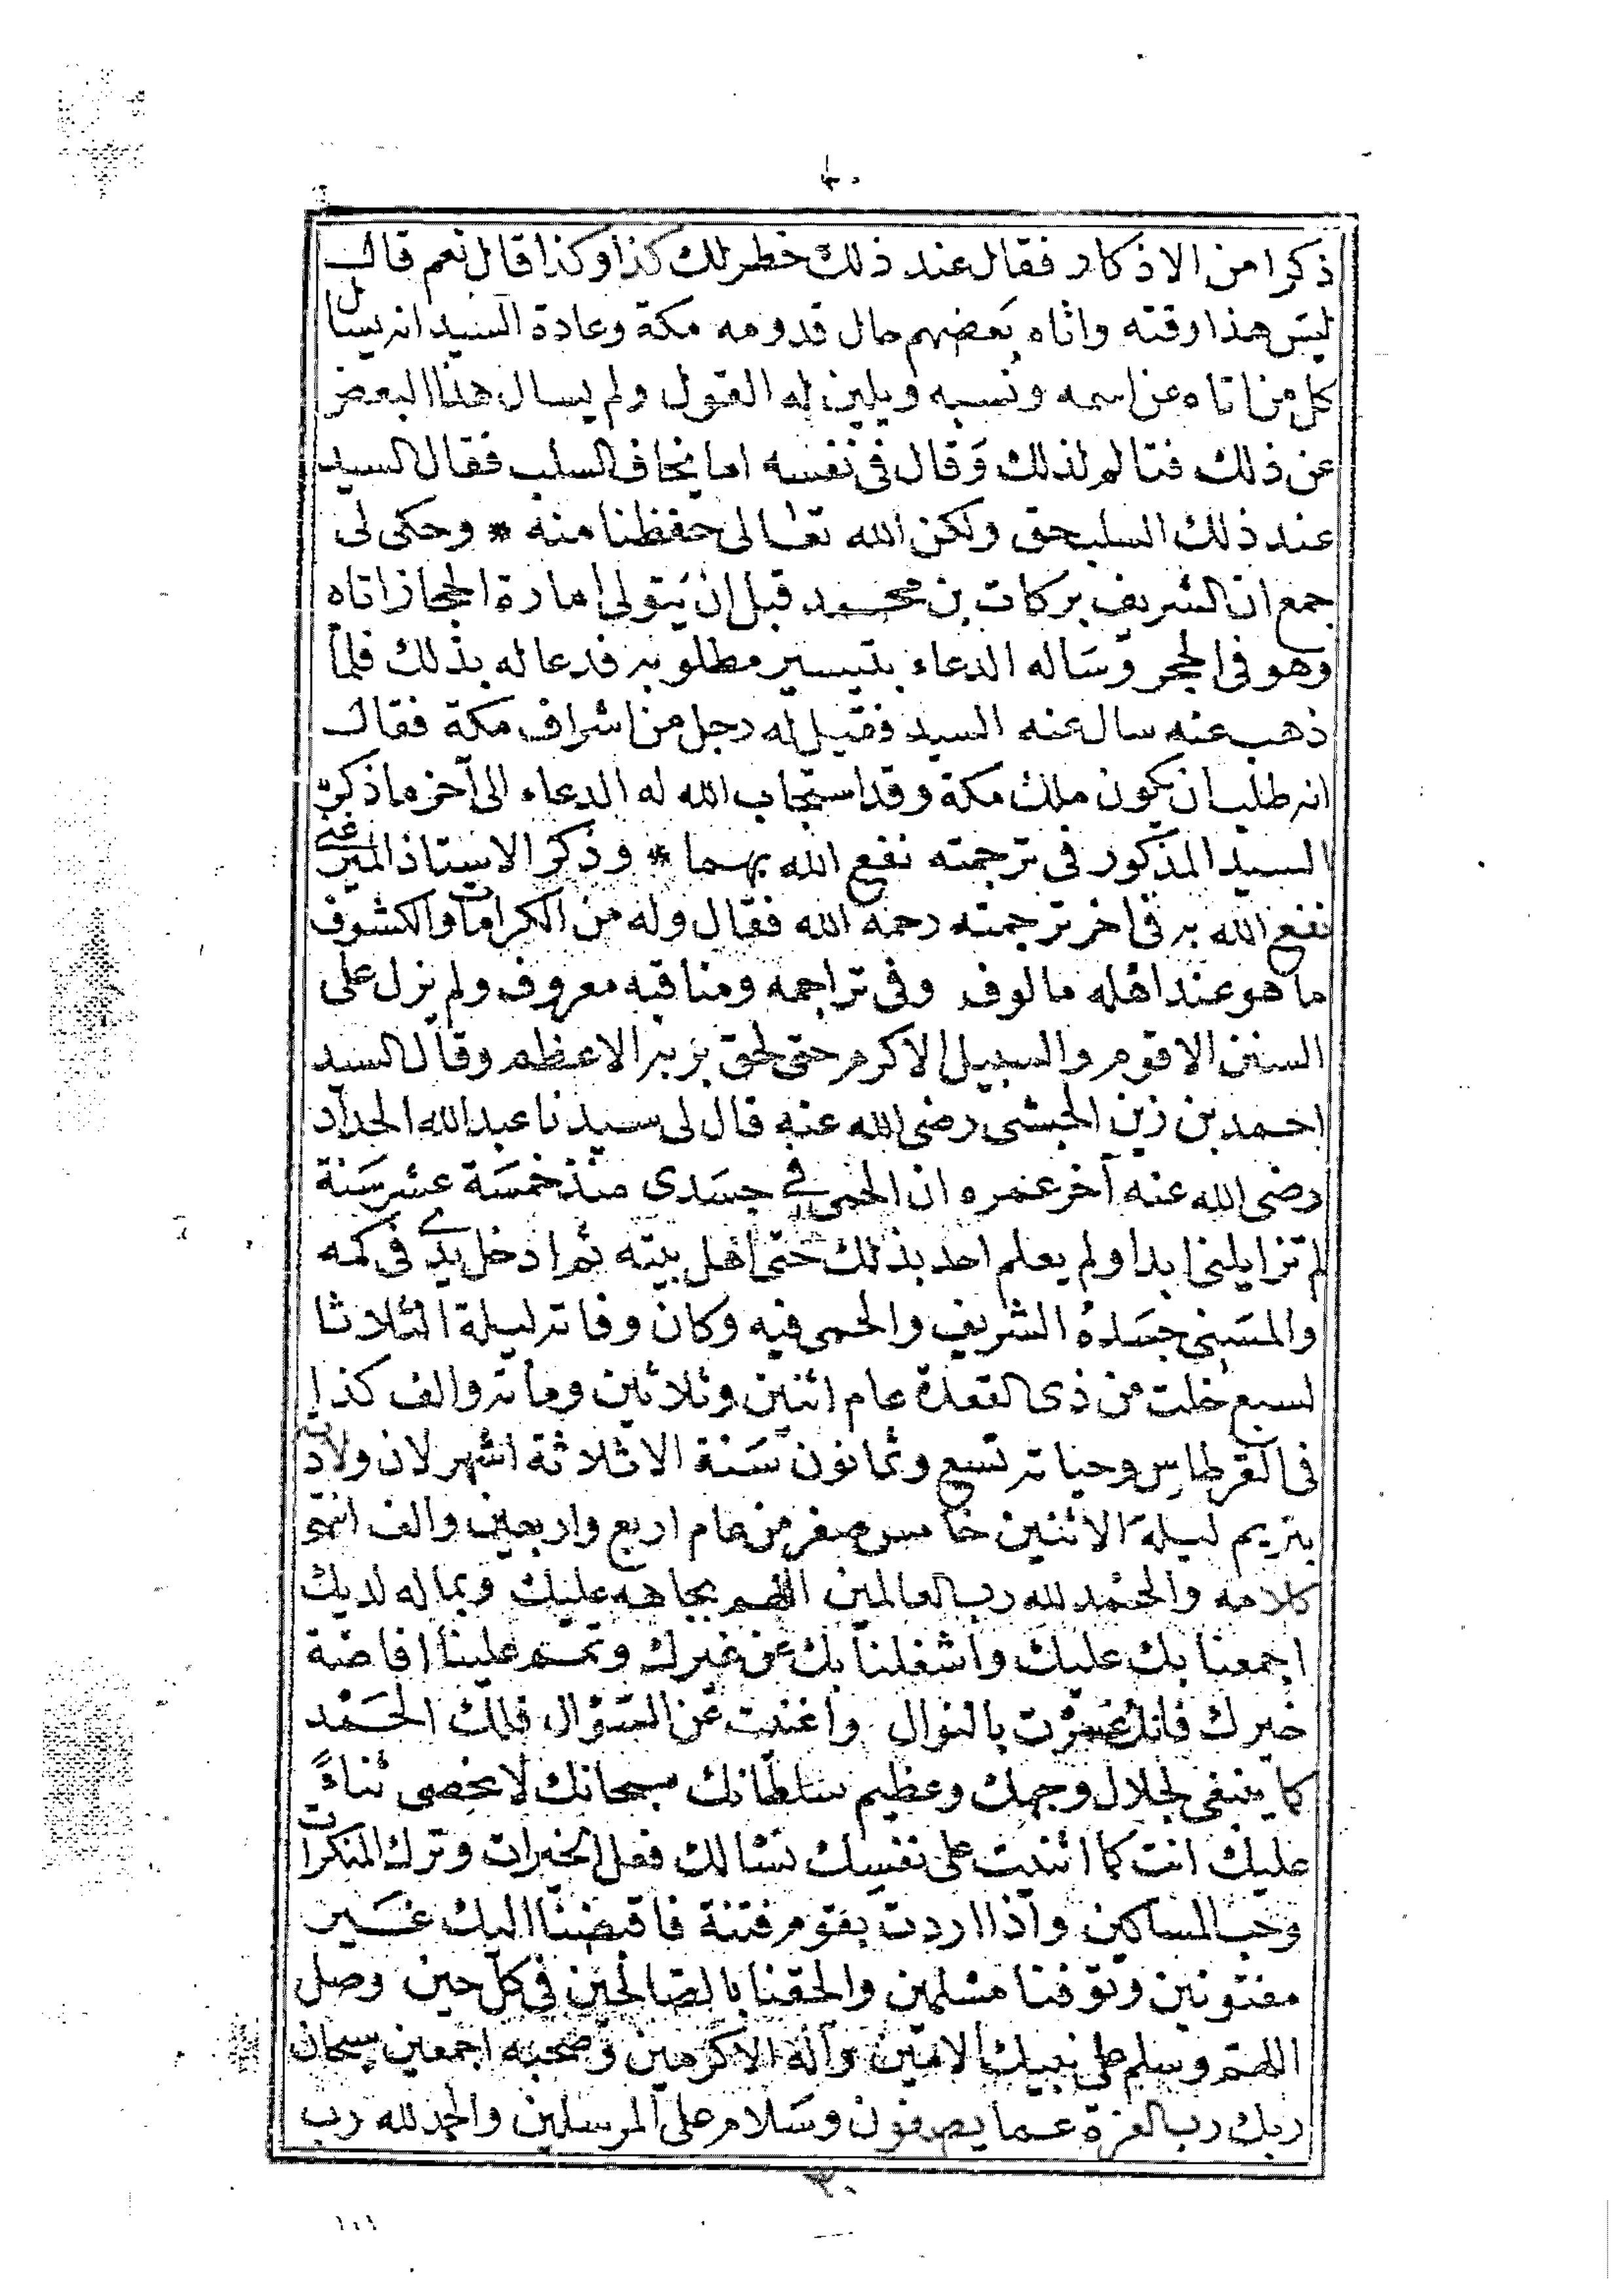 ذكرا من الاذكار فقال عند ذلك خطر لك كذا وكذا قال نعم قال
ليس هذا وقته واتاه بعضهم حال قدومه مكة وعادة السيد انه يسال
كل من اتاه عن اسمه ونسبه ويلين له القول ولم يسال هذا البعض
عن ذلك فتالم لذلك وقال فى نفسه اما يخاف السلب فقال السيد
عند ذلك السلب حق ولكن الله تعالى حفظنا منه * وحكى لى
جمع ان الشريف بركات بن محمد قبل ان يتولى امارة الحجاز اتاه
وهو فى الحجر وساله الدعاء بتيسير مطلوبه فدعا له بذلك فلما
ذهب عنه سال عنه السيد فقيل له رجل من اشراف مكة فقال
انه طلب ان يكون ملك مكة وقد استجاب الله له الدعاء الى آخر ما ذكره
السيد المذكور فى ترجمته نفع الله بهما * وذكر الاستاذ الميرغنى
نفع الله به فى اخر ترجمته رحمه الله فقال وله من الكرامات والكشوف
ما هو عند اهله مالوف وفى تراجمه ومناقبه معروف ولم يزل على
السنن الاقوم والسبيل الاكرم حتى لحق بربه الاعظم وقال السيد
احمد بن زين الحبشى رضى الله عنه قال لى سيدنا عبد الله الحداد
رضى الله عنه آخر عمره ان الحمى في جسدى منذ خمسة عشر سنة
لم تزايلنى ابدا ولم يعلم احد بذلك حتى اهل بيته ثم ادخل يدي فى كمه
والمسنى جسده الشريف والحمى فيه وكان وفاته ليلة الثلاثا
لسبع خلت من ذى القعدة عام اثنين وثلاثين ومأته والف كذا
فى القرطاس وحياته تسع وثمانون سنة الا ثلاثة اشهر لان ولادته
بتريم ليلة الاثنين خامس صفر من عام اربع واربعين والف انتهى
كلامه والحمد لله رب العالمين اللهم بجاهه عليك وبما له لديك
اجمعنا بك عليك واشغلنا بك عن غيرك وتمم علينا افاضة
خيرك فانك غمرت بالنوال واغنيت عن السؤال فلك الحمد
كما ينبغى لجلال وجهك وعظيم سلطانك سبحانك لا نحصى ثناءً
عليك انت كما اثنيت على نفسك نسالك فعل الخيرات وترك المنكرات
وحب المساكين واذا اردت بقوم فتنة فاقبضنا اليك غير
مفتونين وتوفنا مسلمين والحقنا بالصالحين فى كل حين وصل
اللهم وسلم على نبيك الامين وآله الاكرمين وصحبه اجمعين سبحان
ربك رب العزة عما يصفون وسلام على المرسلين والحمد لله رب